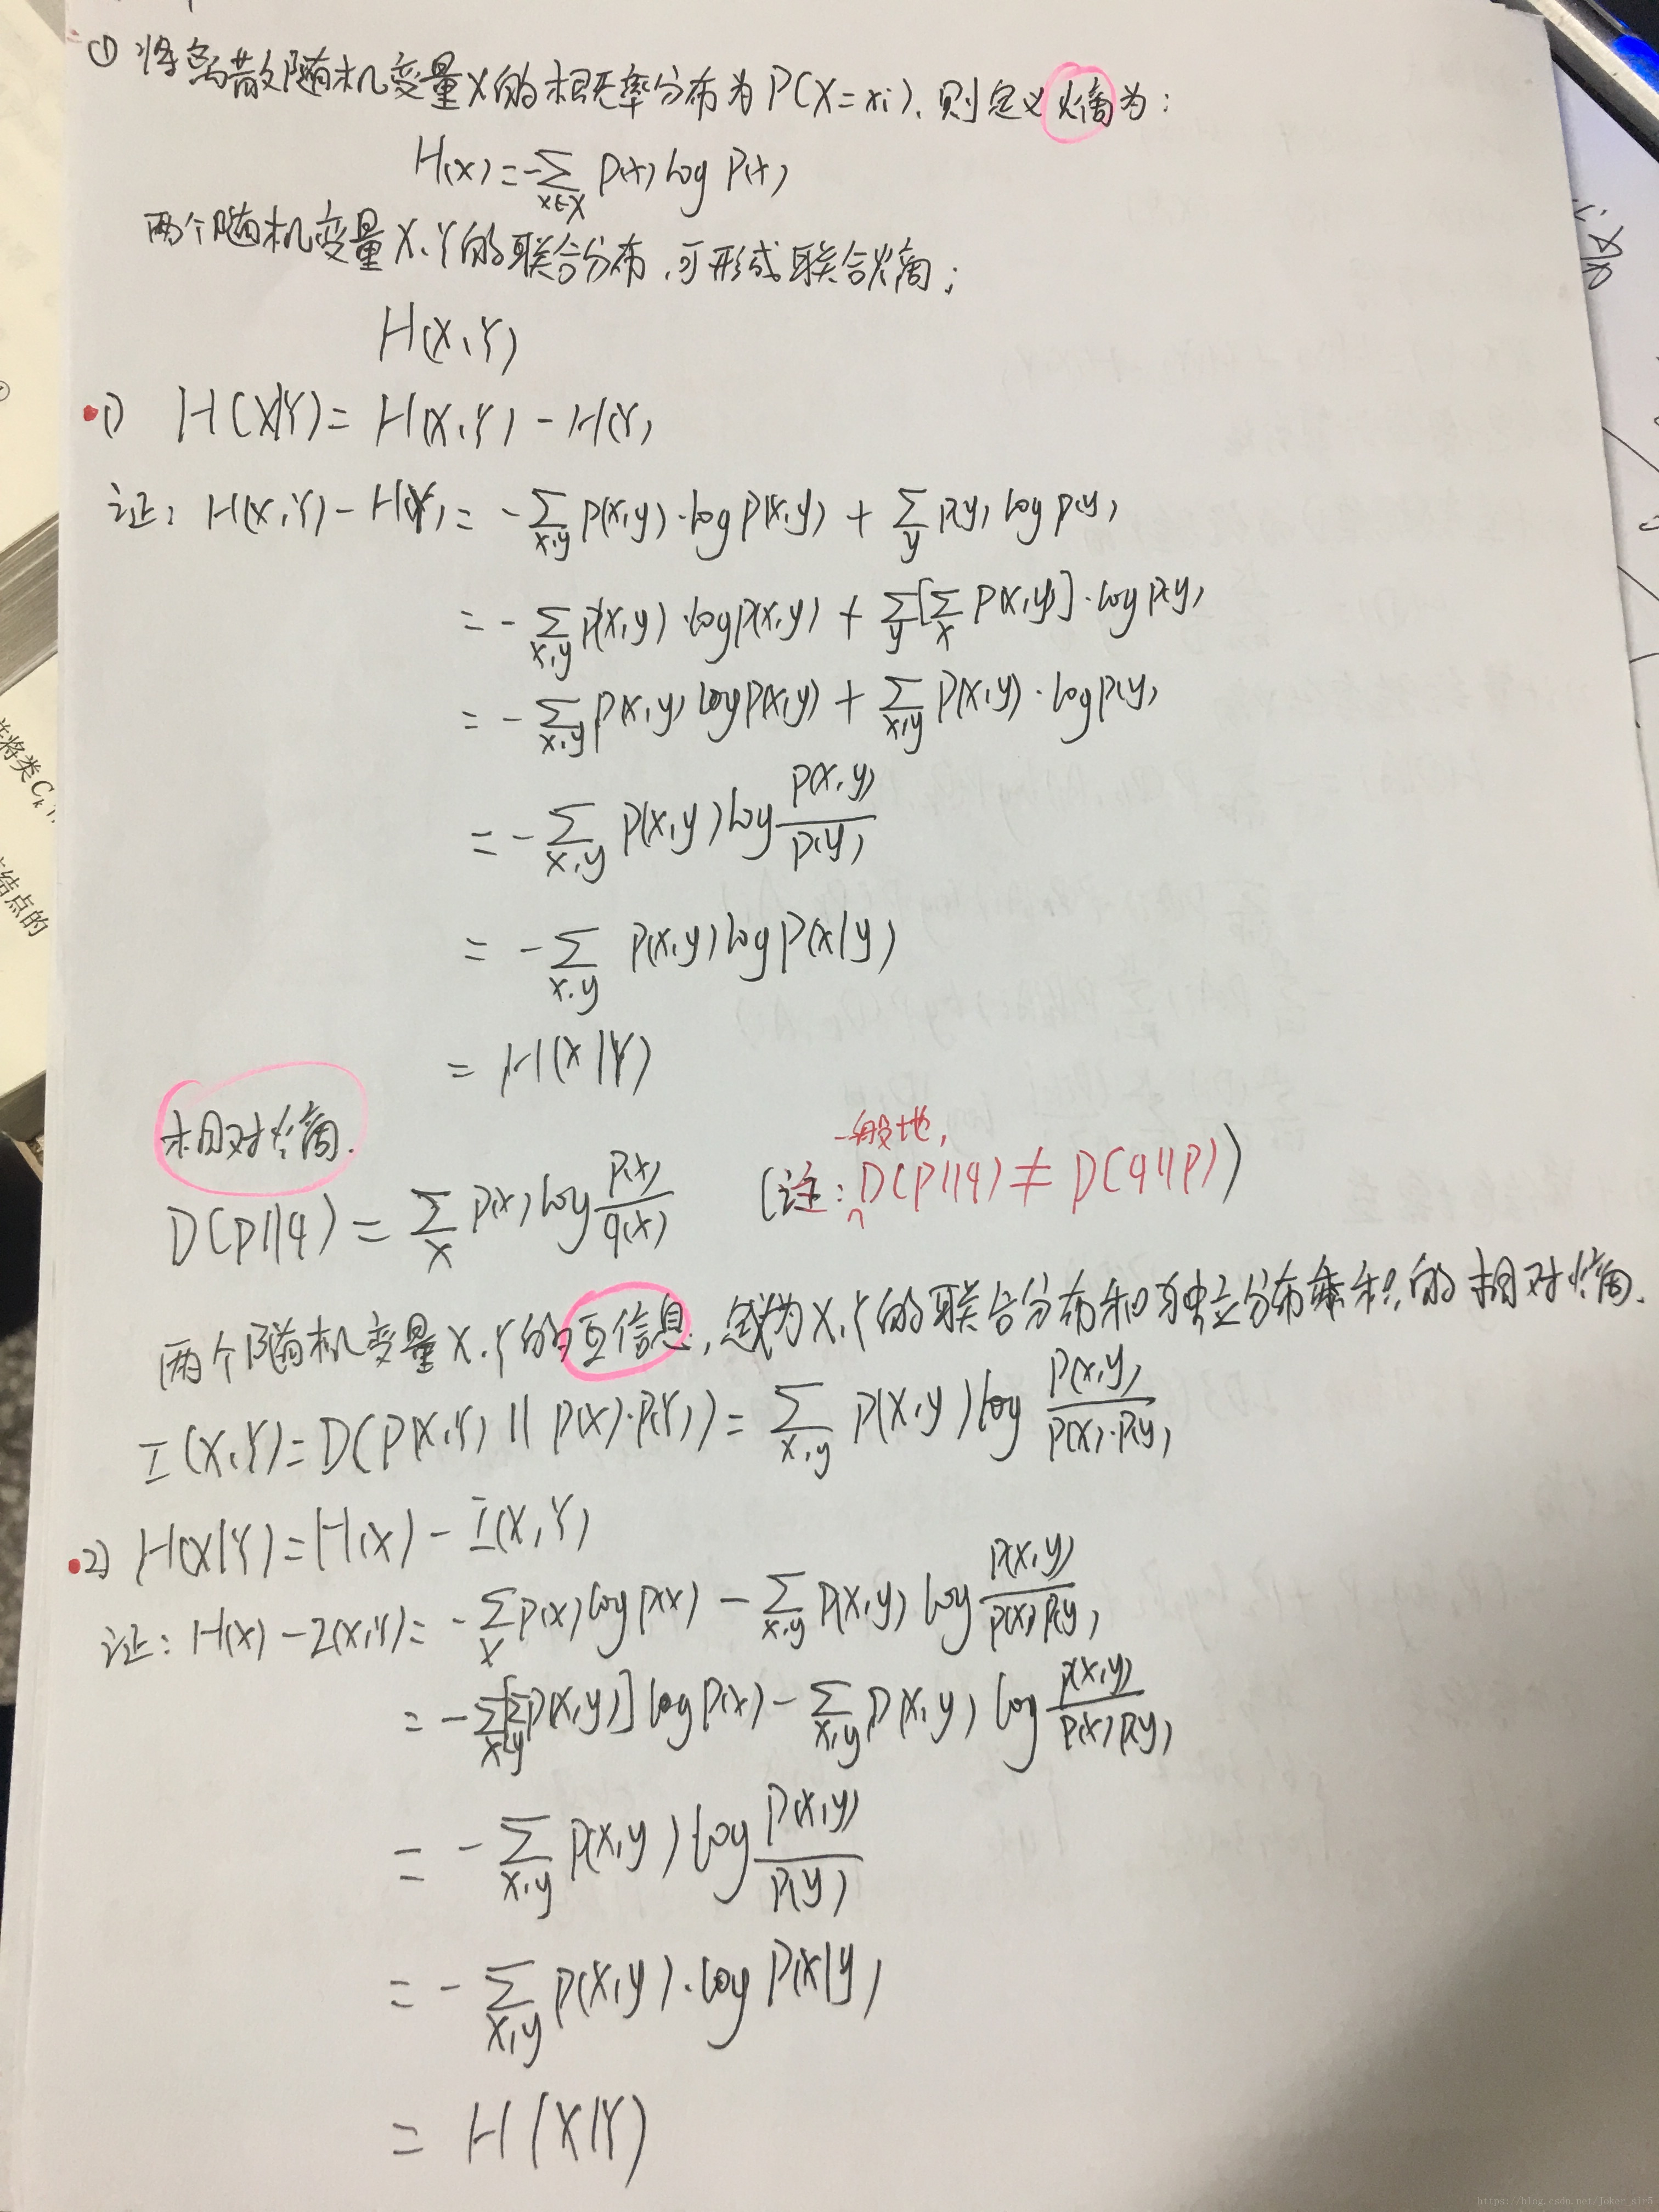 ① 将离散随机变量X的概率分布为P(X=xi),则定义熵为:
H(X)=-∑_{x∈X} P(x) log P(x)
两个随机变量X,Y的联合分布,可形成联合熵:
H(X,Y)
1) H(X|Y)=H(X,Y)-H(Y)
证: H(X,Y)-H(Y)=-∑_{x,y} P(x,y)·log P(x,y)+∑_y P(y) log P(y)
=-∑_{x,y} P(x,y)·log P(x,y)+∑_y[∑_x P(x,y)]·log P(y)
=-∑_{x,y} P(x,y) log P(x,y)+∑_{x,y} P(x,y)·log P(y)
=-∑_{x,y} P(x,y) log P(x,y)/P(y)
=-∑_{x,y} P(x,y) log P(x|y)
=H(X|Y)
相对熵.
一般地,
D(p||q)=∑_x P(x) log P(x)/q(x) (注: D(p||q)≠D(q||p))
两个随机变量X,Y的互信息,为X,Y的联合分布和独立分布乘积的相对熵.
I(X,Y)=D(P(X,Y)||P(X)·P(Y))=∑_{x,y} P(x,y) log P(x,y)/P(x)·P(y)
2) H(X|Y)=H(X)-I(X,Y)
证: H(X)-I(X,Y)=-∑_x P(x) log P(x)-∑_{x,y} P(x,y) log P(x,y)/P(x)P(y)
=-∑_x[∑_y P(x,y)] log P(x)-∑_{x,y} P(x,y) log P(x,y)/P(x)P(y)
=-∑_{x,y} P(x,y) log P(x,y)/P(y)
=-∑_{x,y} P(x,y)·log P(x|y)
=H(X|Y)
将类C_k
结点的
https://blog.csdn.net/joker_slr5